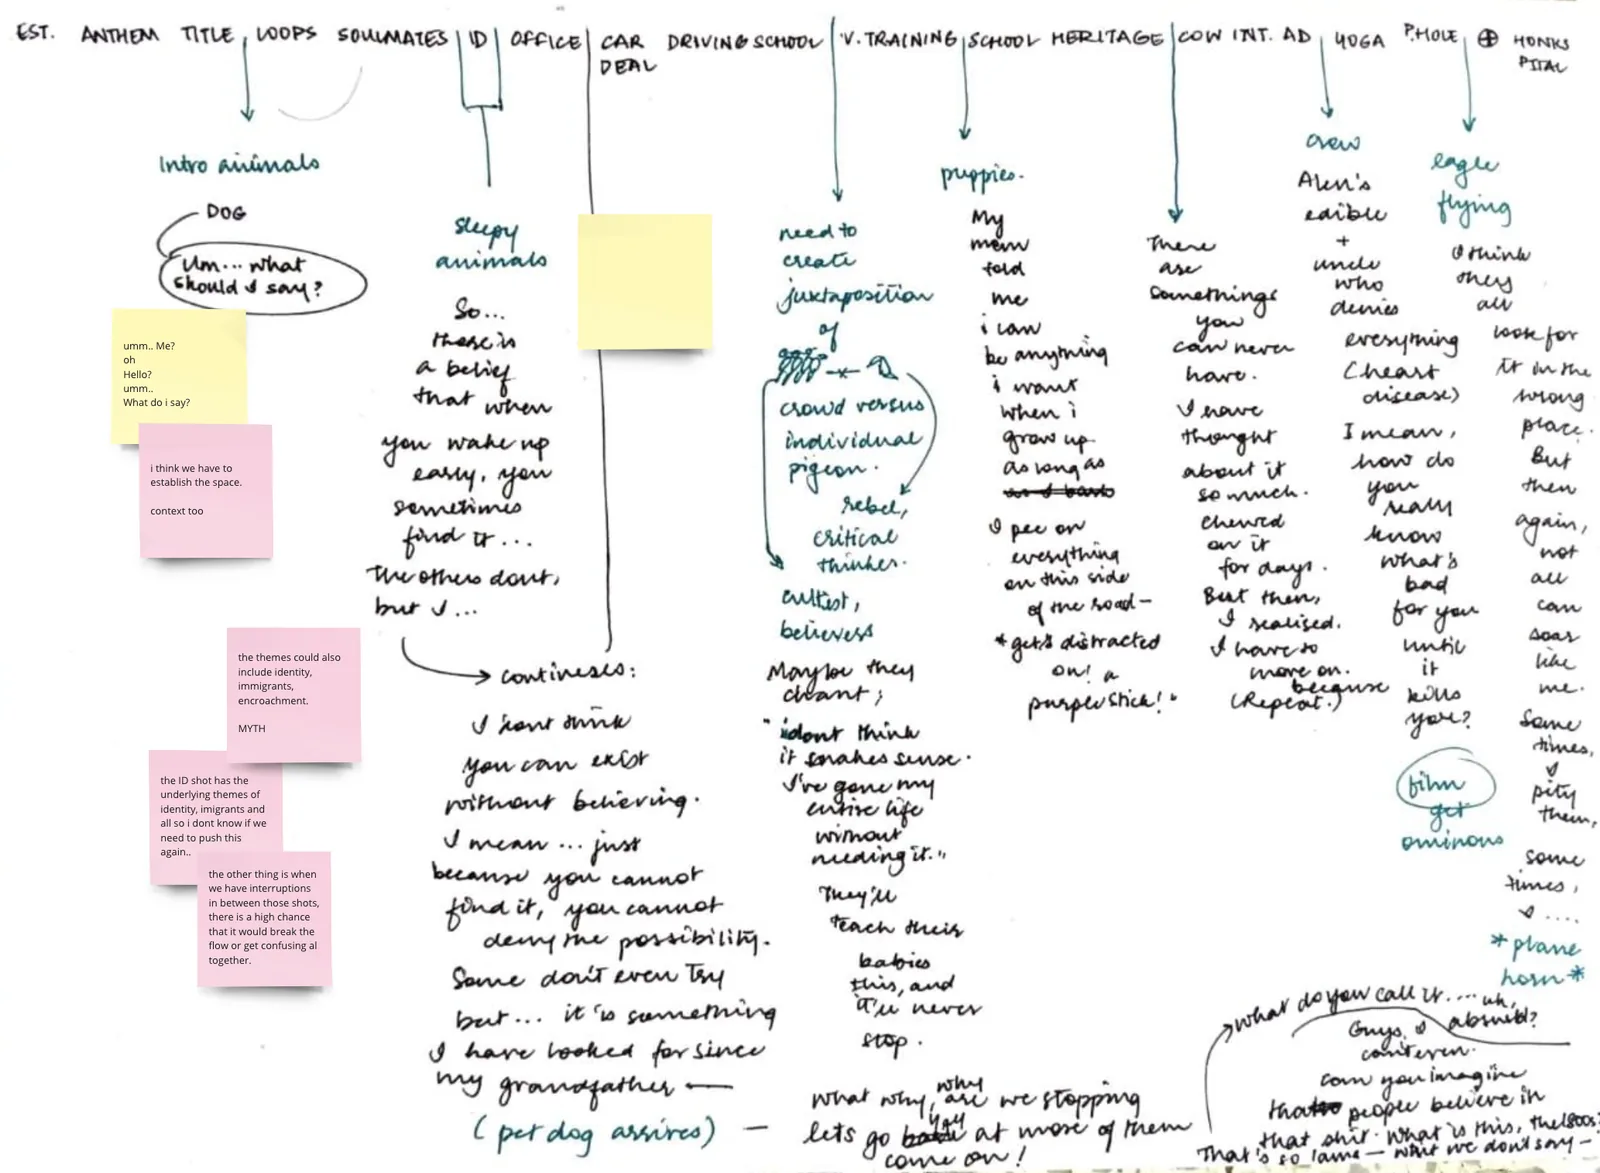 EST. ANTHEM TITLE LOOPS SOULMATES ID OFFICE CAR DRIVING SCHOOL V. TRAINING SCHOOL HERITAGE COW INT. AD YOGA P.HOLE ⊕ HONKS
DEAL
PITAL
Intro animals
DOG
Um... what
should I say?
umm.. Me?
oh
Hello?
umm..
What do i say?
i think we have to
establish the space.
context too
the themes could also
include identity,
immigrants,
encroachment.
MYTH
the ID shot has the
underlying themes of
identity, imigrants and
all so i dont know if we
need to push this
again..
the other thing is when
we have interruptions
in between those shots,
there is a high chance
that it would break the
flow or get confusing al
together.
sleepy
animals
So...
there is
a belief
that when
you wake up
early, you
sometimes
find it...
The others dont,
but I...
continues:
I dont think
you can exist
without believing.
I mean ... just
because you cannot
find it, you cannot
deny the possibility.
Some don't even try
but... it is something
I have looked for since
my grandfather —
(pet dog arrives) —
need to
create
juxtaposition
of
crowd versus
individual
pigeon.
rebel,
critical
thinker.
cultest,
believers
Maybe they
chant;
"idont think
it makes sense.
I've gone my
entire life
without
needing it."
They'll
teach their
babies
this, and
it'll never
stop.
what why, why are we stopping
lets go yay at more of them
come on!
puppies.
My
mom
told
me
i can
be anything
i want
when i
grow up
as long as
I pee on
everything
on this side
of the road—
*gets distracted
on! a
purple stick!"
There
are
somethings
you
can never
have.
I have
thought
about it
so much.
chewed
on it
for days.
But then,
I realised.
I have to
move on.
because
(Repeat.)
crow
Alen's
edible
+
uncle
who
denies
everything
(heart
disease)
I mean,
how do
you
really
know
what's
bad
for you
until
it
kills
you?
film
get
ominous
eagle
flying
I think
they
all
look for
it in the
wrong
place.
But
then
again,
not
all
can
soar
like
me.
Some
times,
I
pity
them,
some
times,
I ....
*plane
horn*
what do you call it.... uh,
absurd?
Guys, I
cant even.
can you imagine
people believe in
that shit. What is this, the 1800s?
That's so lame — what we dont say —